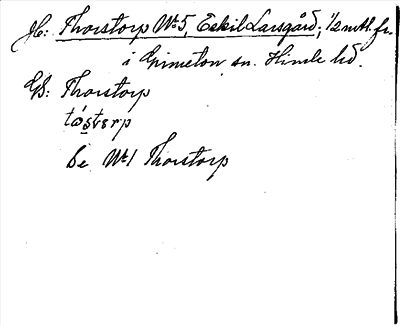 Jb: Thorstorp Nr 5, Eskil Larsgård; 1/2 mtl. fr.
i Grimeton sn. Himle hd.
GS: Thorstorp
tåsterp
Se Nr 1 Thorstorp